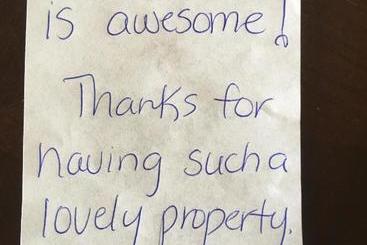 is awesome!
Thanks for
having such a
lovely property.